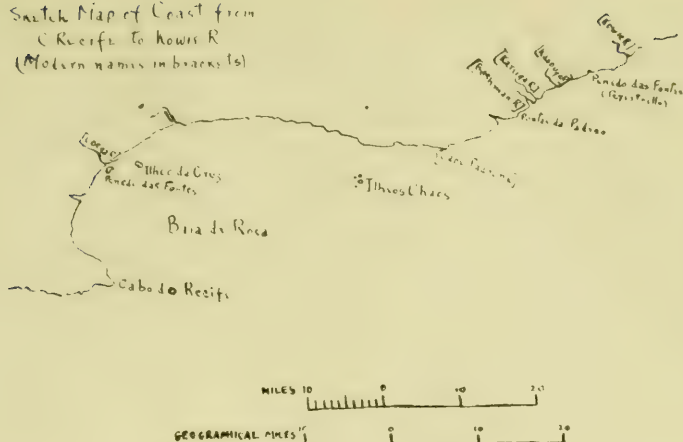 Sketch Map of Coast from
C Recife to Kowie R
(Modern names in brackets)
[Kowie R]
[Kasouga]
[Kariega R]
[Bushmans R]
Penedo das Fontes
Ponta do Padrao
Ilheo da Cruz
Penedo das Fontes
Ilheos Chaos
Baia da Roca
Cabo do Recife
MILES 10 0 10 20
GEOGRAPHICAL MILES 10 0 10 20